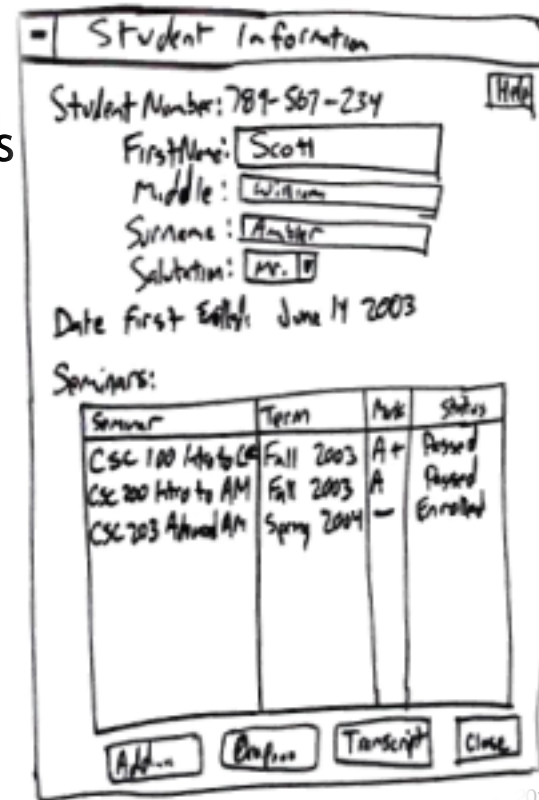 - Student Information
Help
Student Number: 789-567-234
s
First Name: Scott
Middle: William
Surname: Ambler
Salutation: Mr.
Date First June 14 2003
Seminars:
Seminar Term Mark Status
CSC 100 Intro to Fall 2003 A+ Passed
CSC 200 Intro to AM Fall 2003 A Passed
CSC 203 Advanced AM Spring 2004 - Enrolled
Add... Drop... Transcript Close